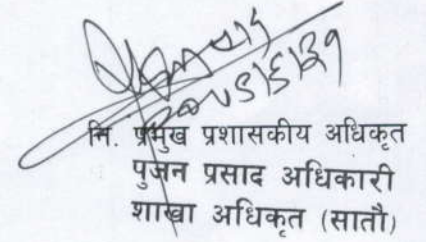 नि. प्रमुख प्रशासकीय अधिकृत
पुजन प्रसाद अधिकारी
शाखा अधिकृत (सातौ)